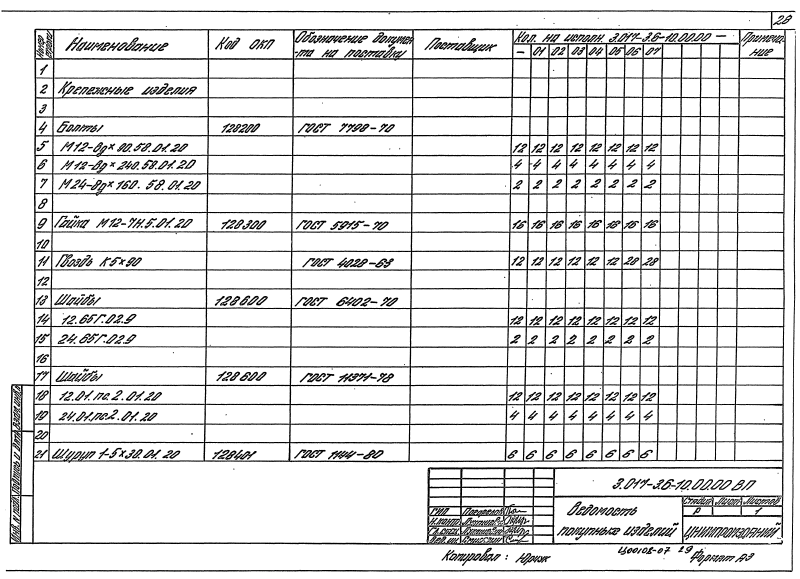 28
Номер строки Наименование Код ОКП Обозначение документа на поставку Поставщик Кол. на исполн. 3.017-3.6-10.00.00 — Примечание
– 01 02 03 04 05 06 07
1
2 Крепежные изделия
3
4 Болты 128200 ГОСТ 7798-70
5 М12-8g×80.58.01.20 12 12 12 12 12 12 12 12
6 М12-8g×240.58.01.20 4 4 4 4 4 4 4 4
7 М24-8g×160. 58.01.20 2 2 2 2 2 2 2 2
8
9 Гайка М12-7Н.5.01.20 128300 ГОСТ 5915-70 16 16 16 16 16 16 16 16
10
11 Гвоздь К5×90 ГОСТ 4028-63 12 12 12 12 12 12 28 28
12
13 Шайбы 128600 ГОСТ 6402-70
14 12.65Г.02.9 12 12 12 12 12 12 12 12
15 24.65Г.02.9 2 2 2 2 2 2 2 2
16
17 Шайбы 128600 ГОСТ 11371-78
18 12.01.пс.2.01.20 12 12 12 12 12 12 12 12
19 24.01.пс.2.01.20 4 4 4 4 4 4 4 4
20
21 Шуруп 1-5×30.01.20 128401 ГОСТ 1144-80 6 6 6 6 6 6 6 6
Инв. № подл. Подпись и дата Взам. инв. №
3.017-3.6-10.00.00 ВП
ГИП
Н.конт
Ведомость покупных изделий
Стадия Лист Листов
Р 1
ЦНИИПРОМЗДАНИЙ
Копировал: Юриж
Ц00108-07 29
Формат А3